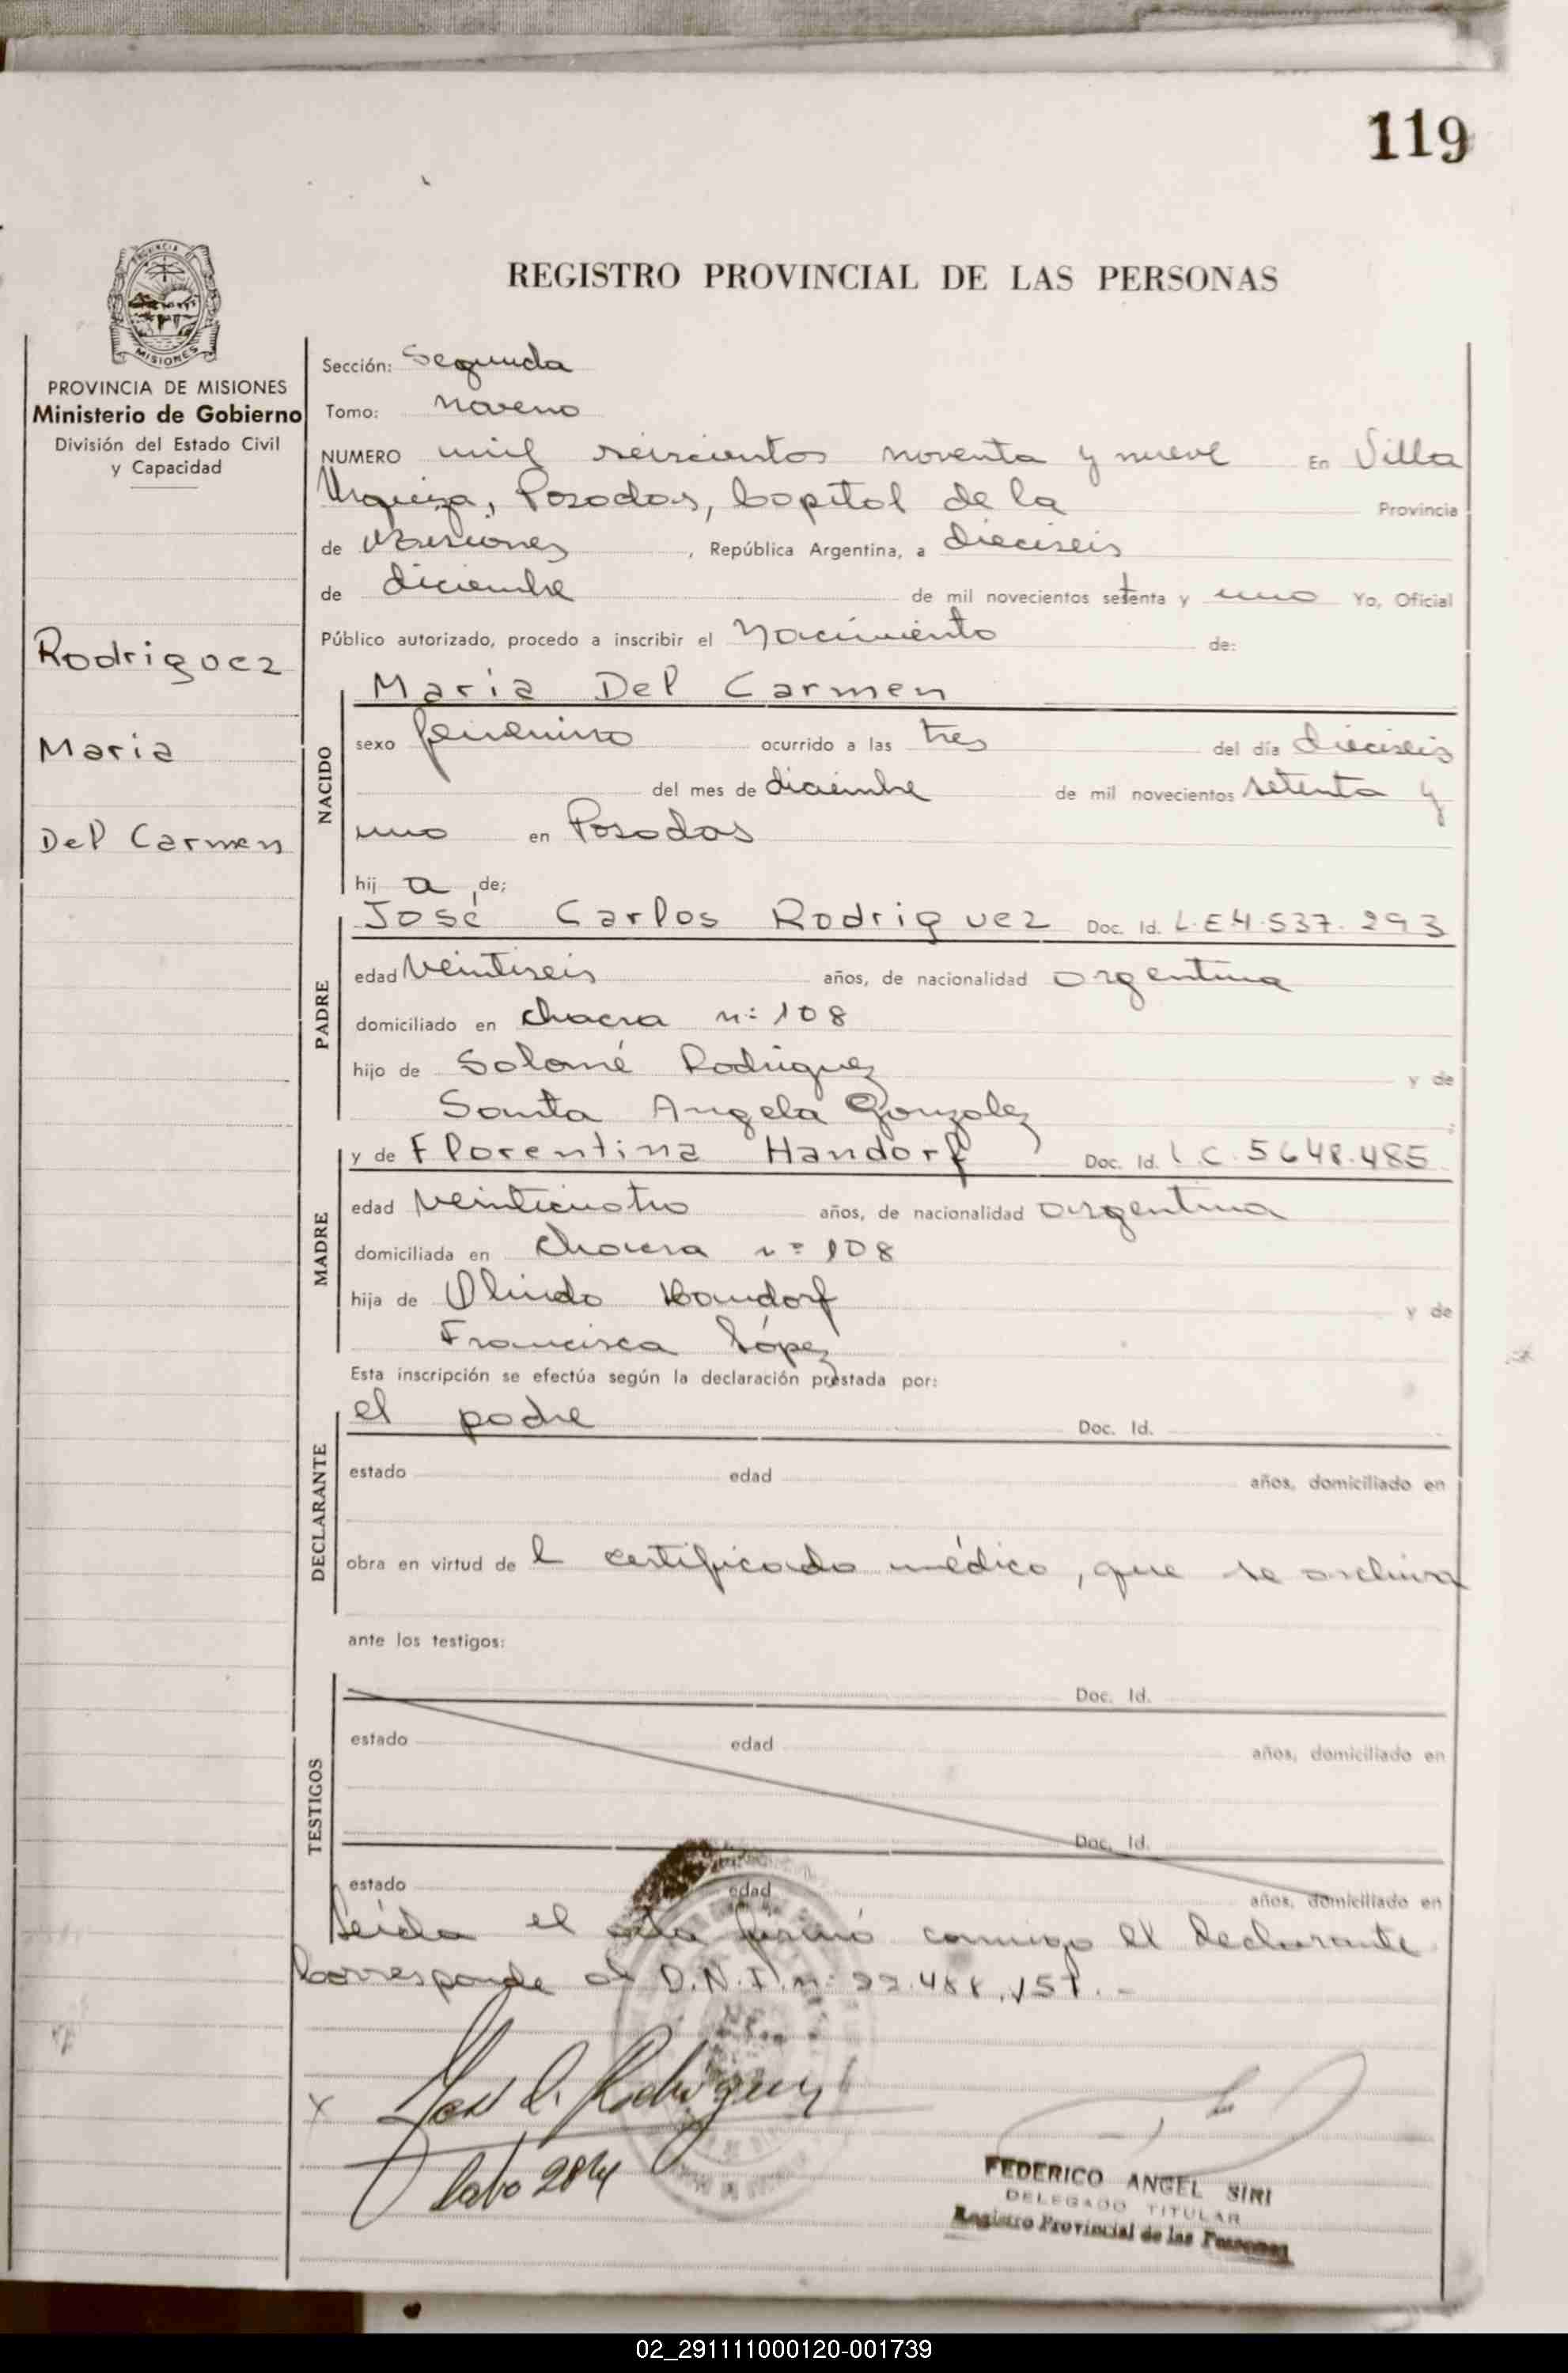 119
REGISTRO PROVINCIAL DE LAS PERSONAS
PROVINCIA
MISIONES
PROVINCIA DE MISIONES
Ministerio de Gobierno
División del Estado Civil
y Capacidad
Rodriguez
Maria
Del Carmen
Sección: Segunda
Tomo: noveno
NUMERO mil seiscientos noventa y nueve En Villa
Urquiza, Posadas, Capital de la Provincia
de Misiones, República Argentina, a dieciseis
de diciembre de mil novecientos setenta y uno Yo, Oficial
Público autorizado, procedo a inscribir el Nacimiento de:
NACIDO
Maria Del Carmen
sexo femenino ocurrido a las tres del día dieciseis
del mes de diciembre de mil novecientos setenta y
uno en Posadas
hij a de;
PADRE
José Carlos Rodriguez Doc. Id. L.E 4.537.293
edad veintiseis años, de nacionalidad argentina
domiciliado en chacra n: 108
hijo de Salomé Rodriguez y de
Santa Angela Gonzalez
MADRE
y de Florentina Handorf Doc. Id. L.C. 5648.485
edad veinticuatro años, de nacionalidad argentina
domiciliada en chacra nº 108
hija de Olindo Handorf y de
Francisca López
Esta inscripción se efectúa según la declaración prestada por:
DECLARANTE
el padre Doc. Id.
estado edad años, domiciliado en
obra en virtud de l certificado médico, que se archiva
ante los testigos:
TESTIGOS
Doc. Id.
estado edad años, domiciliado en
Doc. Id.
estado edad años, domiciliado en
Leída el acta firmó conmigo el declarante
Corresponde al D.N.I. n: 22.488.151.-
x José C. Rodriguez
FEDERICO ANGEL SIRI
DELEGADO TITULAR
Registro Provincial de las Personas
02_291111000120-001739